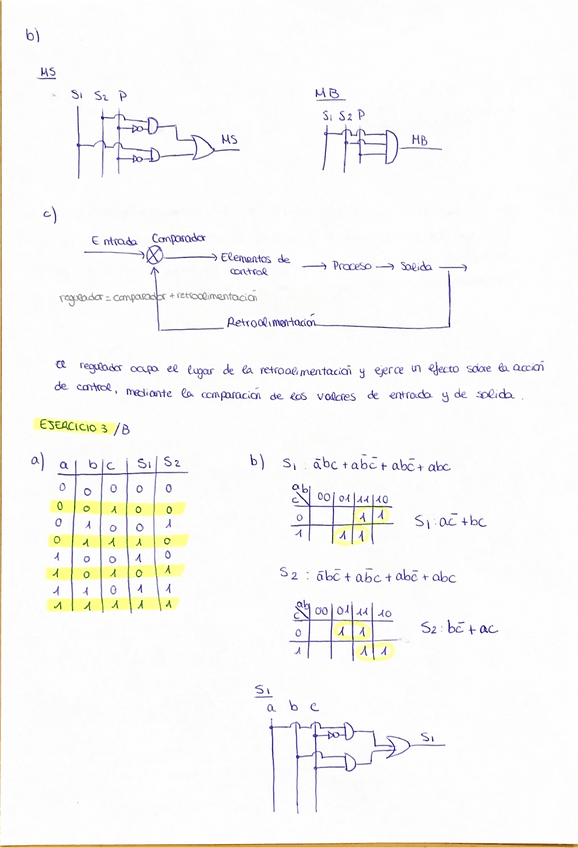 b)
MS
S1 S2 P
MS
MB
S1 S2 P
MB
c)
Entrada Comparador
Elementos de
control
Proceso
Salida
regulador = comparador + retroalimentación
Retroalimentación
El regulador ocupa el lugar de la retroalimentación y ejerce un efecto sobre la acción
de control, mediante la comparación de los valores de entrada y de salida.
EJERCICIO 3 /B
a)
a b c S1 S2
0 0 0 0 0
0 0 1 0 0
0 1 0 0 1
0 1 1 1 0
1 0 0 1 0
1 0 1 0 1
1 1 0 1 1
1 1 1 1 1
b) S1: a̅bc + ab̅c̅ + abc̅ + abc
ab
c 00 01 11 10
0 1 1
1 1 1
S1: ac̅ + bc
S2: a̅bc̅ + ab̅c + abc̅ + abc
ab
c 00 01 11 10
0 1 1
1 1 1
S2: bc̅ + ac
S1
a b c
S1